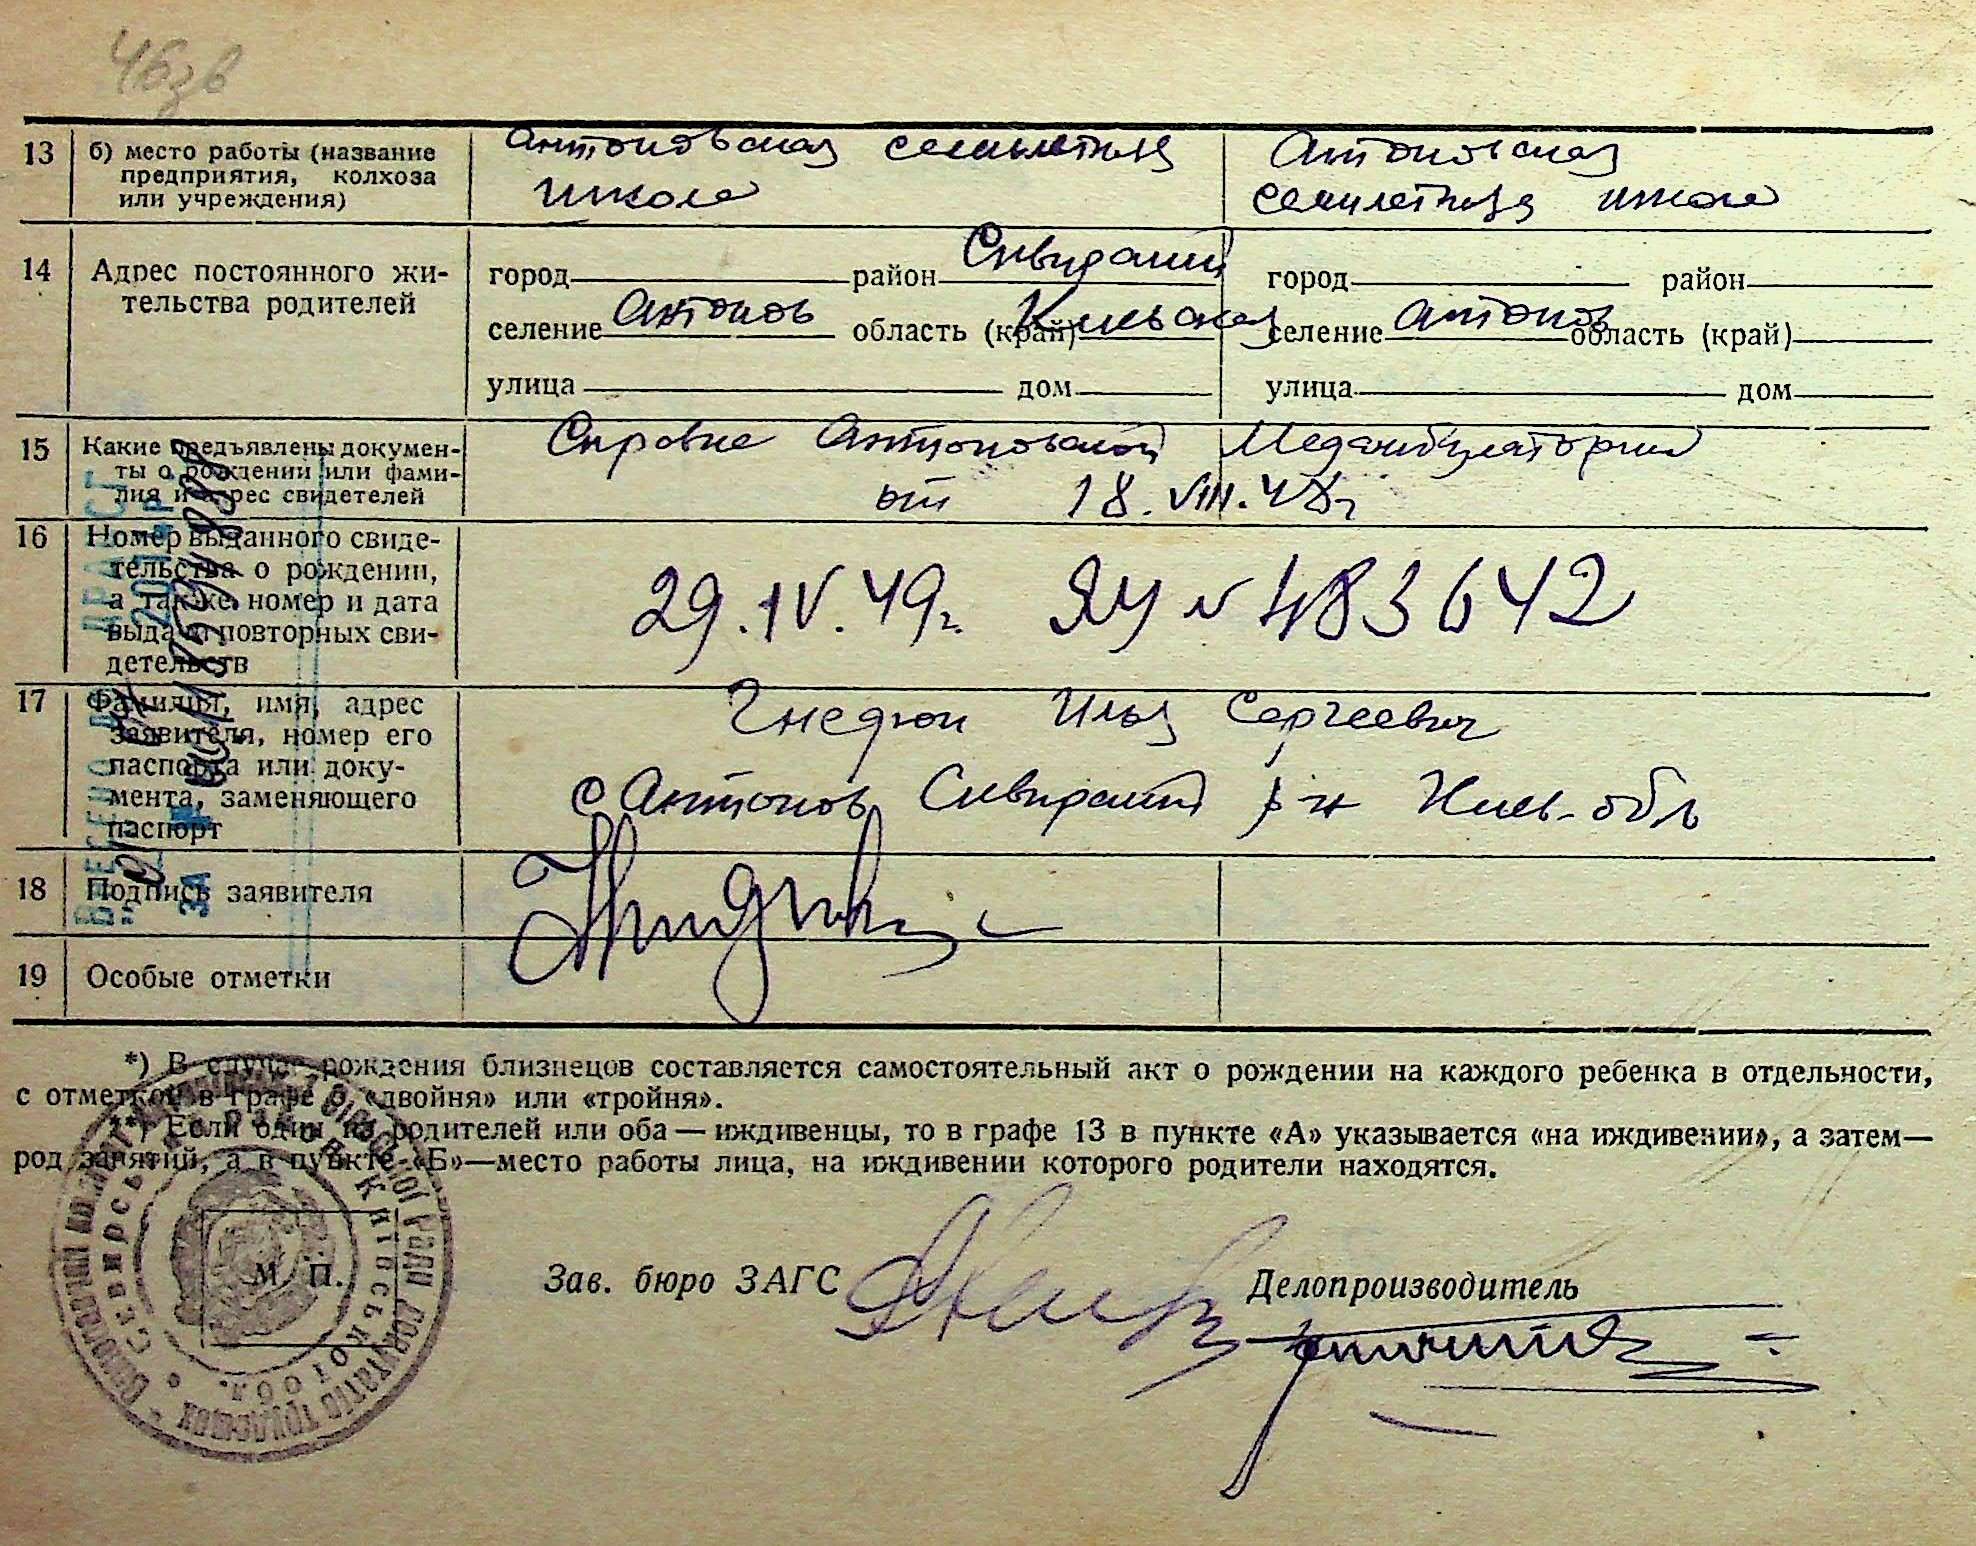 46зв
13 б) место работы (название предприятия, колхоза или учреждения)
Антоновская семилетняя школа
Антоновская семилетняя школа
14 Адрес постоянного жи-
тельства родителей
город район Сквирский
селение Антонов область (край) Киевская
улица дом
город район
селение Антонов область (край)
улица дом
15 Какие предъявлены докумен-
ты о рождении или фами-
лия и адрес свидетелей
Справка Антоновской Медамбулатории
от 18.VIII.48г
16 Номер выданного свиде-
тельства о рождении,
а также номер и дата
выдачи повторных сви-
детельств
29.IV.49г. ЯУ N 483642
17 Фамилия, имя, адрес
заявителя, номер его
паспорта или доку-
мента, заменяющего
паспорт
Илья Сергеевич
с Антонов Сквирский р-н Киев-обл
18 Подпись заявителя
19 Особые отметки
ВНЕСЕНО ДО ДРАЦСГ
ЗА №
*) В случае рождения близнецов составляется самостоятельный акт о рождении на каждого ребенка в отдельности,
с отметкой в графе 5 «двойня» или «тройня».
**) Если один из родителей или оба — иждивенцы, то в графе 13 в пункте «А» указывается «на иждивении», а затем—
род занятий, а в пункте «Б»—место работы лица, на иждивении которого родители находятся.
М. П.
Зав. бюро ЗАГС
Делопроизводитель